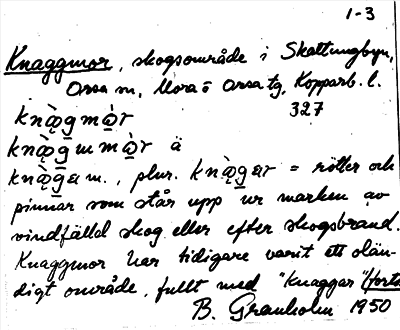 1-3
Knaggmor, skogsområde i Skattungbyn,
Orsa sn, Mora o Orsa tg, Kopparb. l.
327
kną̀g̱mò̱r
kną̀g̱ɯmò̱r ä
kną̀g̱a m., plur. kną̀g̱ar = rötter och
pinnar som står upp ur marken av
vindfälld skog eller efter skogsbrand.
Knaggmor har tidigare varit ett olän-
digt område, fullt med "Knaggar" Forts
B. Granholm 1950